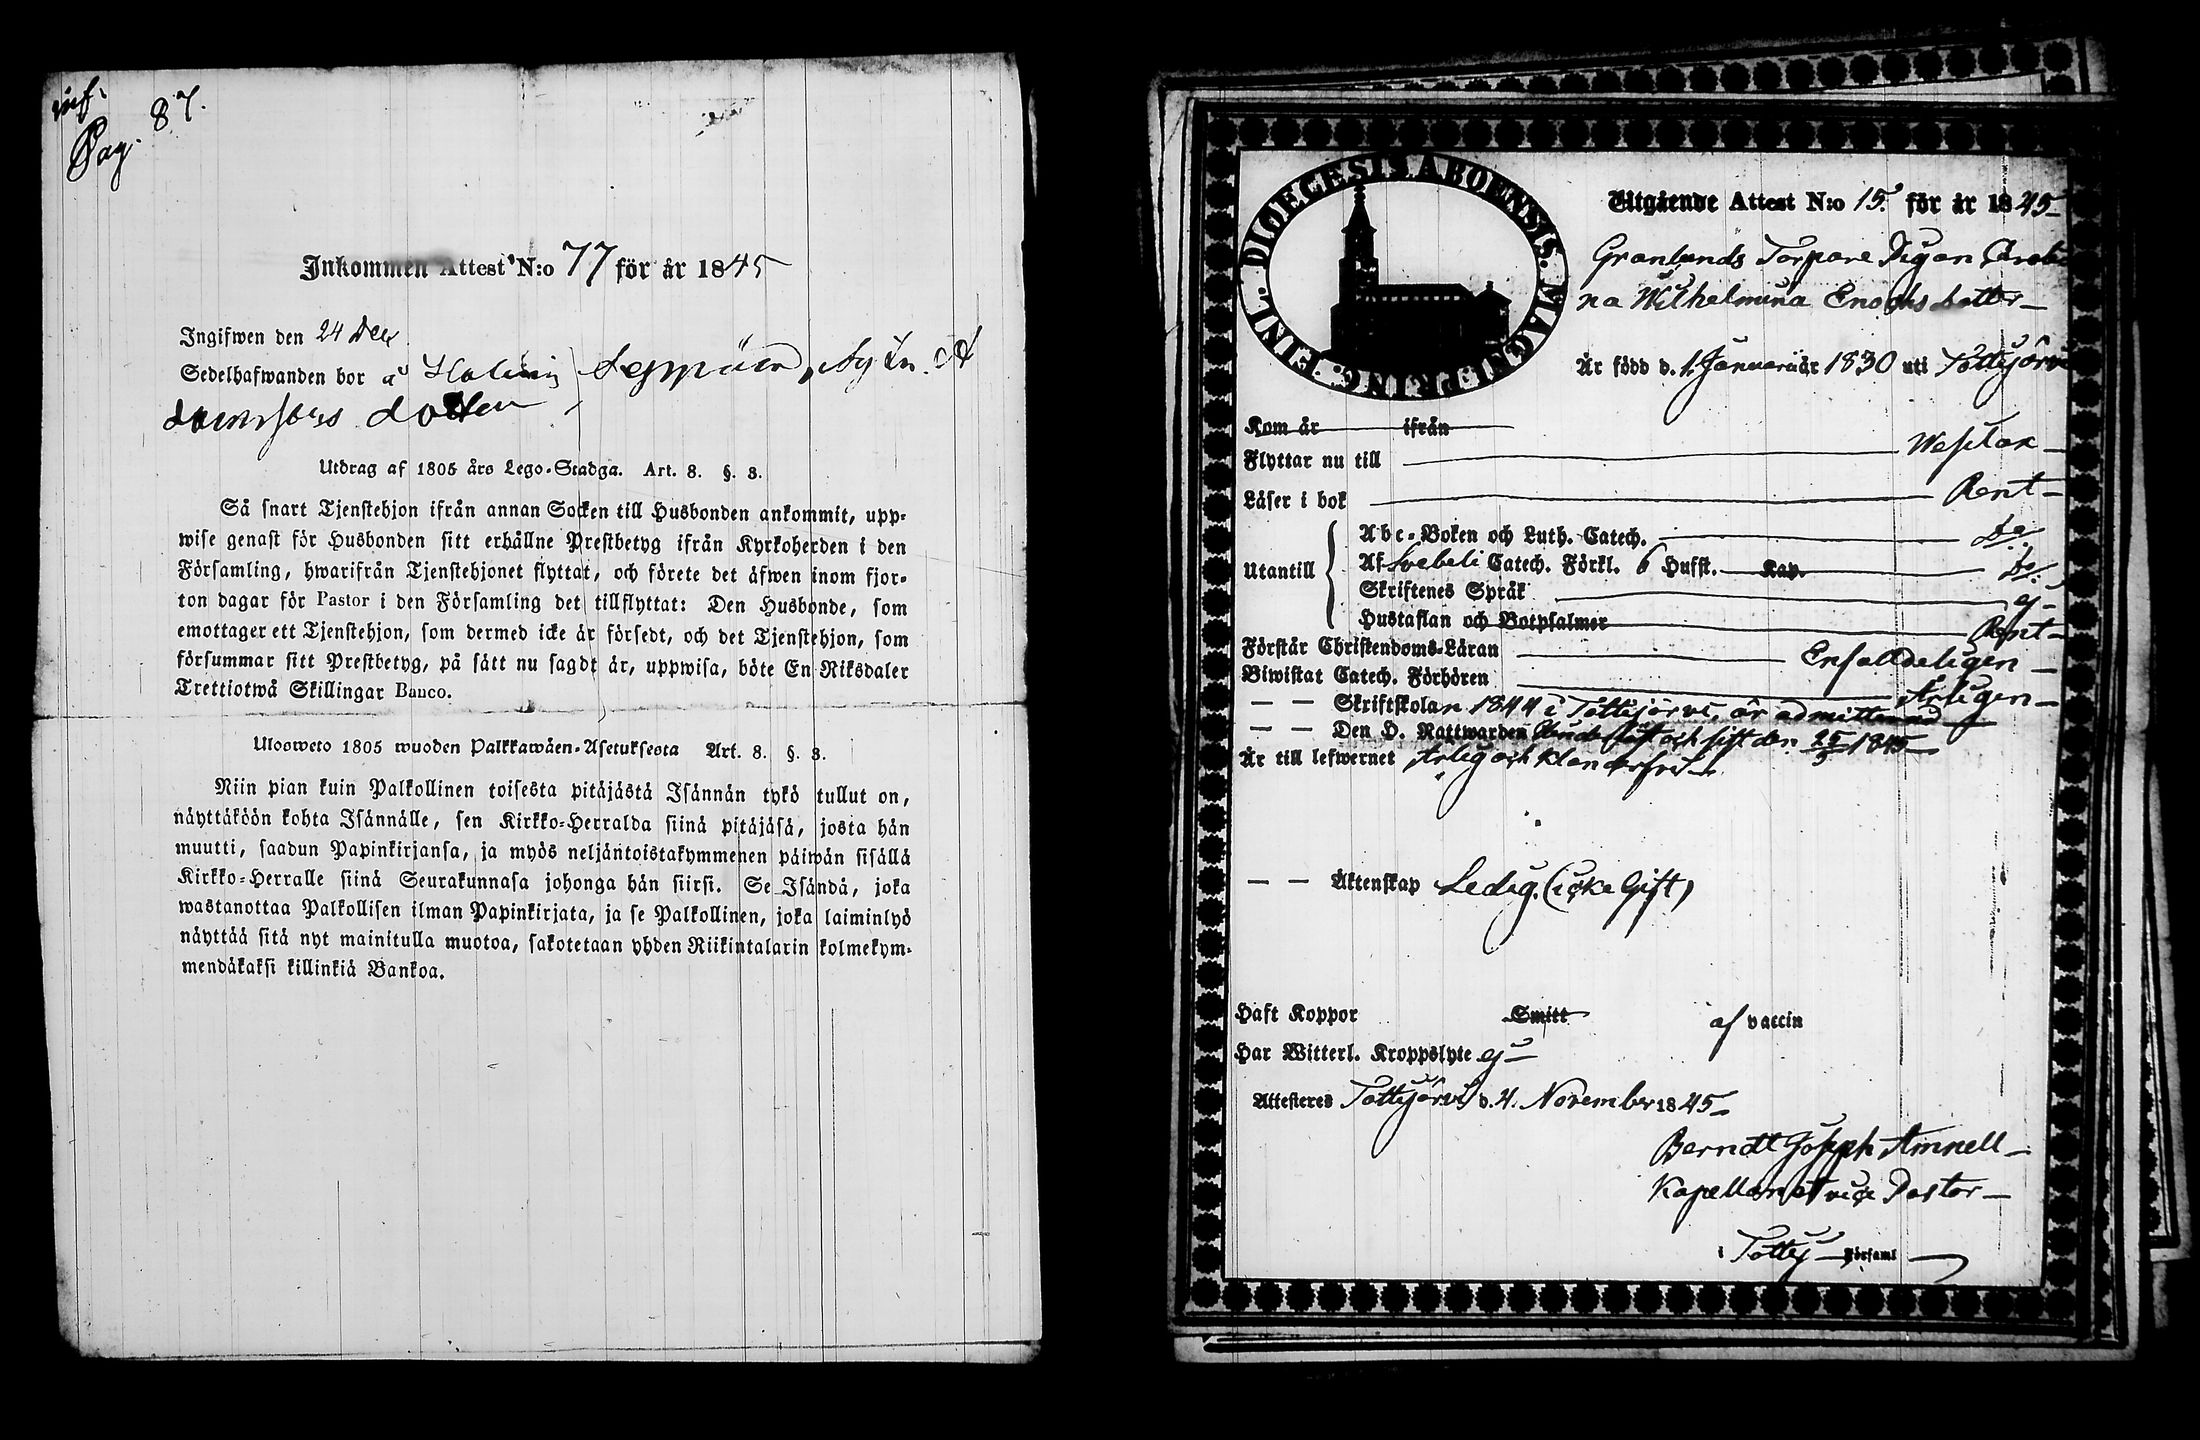 inf.
Pag. 87.
Inkommen Attest N:o 77 för år 1845
Ingifwen den 24 Dec
Sedelhafwanden bor å
dotter
Utdrag af 1805 års Lego-Stadga. Art. 8. §. 3.
Så snart Tjenstehjon ifrån annan Socken till Husbonden ankommit, upp-
wise genast för Husbonden sitt erhållne Prestbetyg ifrån Kyrkoherden i den
Församling, hwarifrån Tjenstehjonet flyttat, och förete det äfwen inom fjor-
ton dagar för Pastor i den Församling det tillflyttat: Den Husbonde, som
emottager ett Tjenstehjon, som dermed icke är försedt, och det Tjenstehjon, som
försummar sitt Prestbetyg, på sätt nu sagdt är, uppwisa, böte En Riksdaler
Trettiotwå Skillingar Banco.
Ulosweto 1805 wuoden Palkkawäen-Asetuksesta Art. 8. §. 3.
Niin pian kuin Palkollinen toisesta pitäjästä Isännän tykö tullut on,
näyttäköön kohta Isännälle, sen Kirkko-Herralda siinä pitäjäsä, josta hän
muutti, saadun Papinkirjansa, ja myös neljäntoistakymmenen päiwän sisällä
Kirkko-Herralle siinä Seurakunnasa johonga hän siirsi. Se Isändä, joka
wastanottaa Palkollisen ilman Papinkirjata, ja se Palkollinen, joka laiminlyö
näyttää sitä nyt mainitulla muotoa, sakotetaan yhden Riikintalarin kolmekym-
mendäkaksi killinkiä Bankoa.
DIOECESIS ABOENSIS. MAGNI PRINC: FINL.
Utgående Attest N:o 15. för år 1845
Granlunds Torpare Pigan
na Wilhelmina Enochs dotter
Är född d. 1. Januarii år 1830 uti Tottijärvi
Kom år ifrån
Flyttar nu till Wesilax
Läser i bok Rent
Utantill
Abc-Boken och Luth. Catech. do
Af Svebeli Catech. Förkl. 6 Hufst. Kap. do.
Skriftenes Språk ej
Hustaflan och Botpsalmer Rent
Förstår Christendoms-Läran Enfalldeligen
Biwistat Catech. Förhören Årligen
— — Skriftskolan 1844 i Tottijärvi, är admitterad
— — Den H. Nattwarden och sist den 25/5 1845
Är till lefwernet Ärlig och klanderfri
— — Äktenskap Ledig. (icke Gift)
Haft Koppor Smitt af vaccin
Har Witterl. Kroppslyte ej
Attesteres Tottijärvi d. 4. November 1845
Berndt Joseph Amnell
Kapellan et vice Pastor
i Tottij Församl